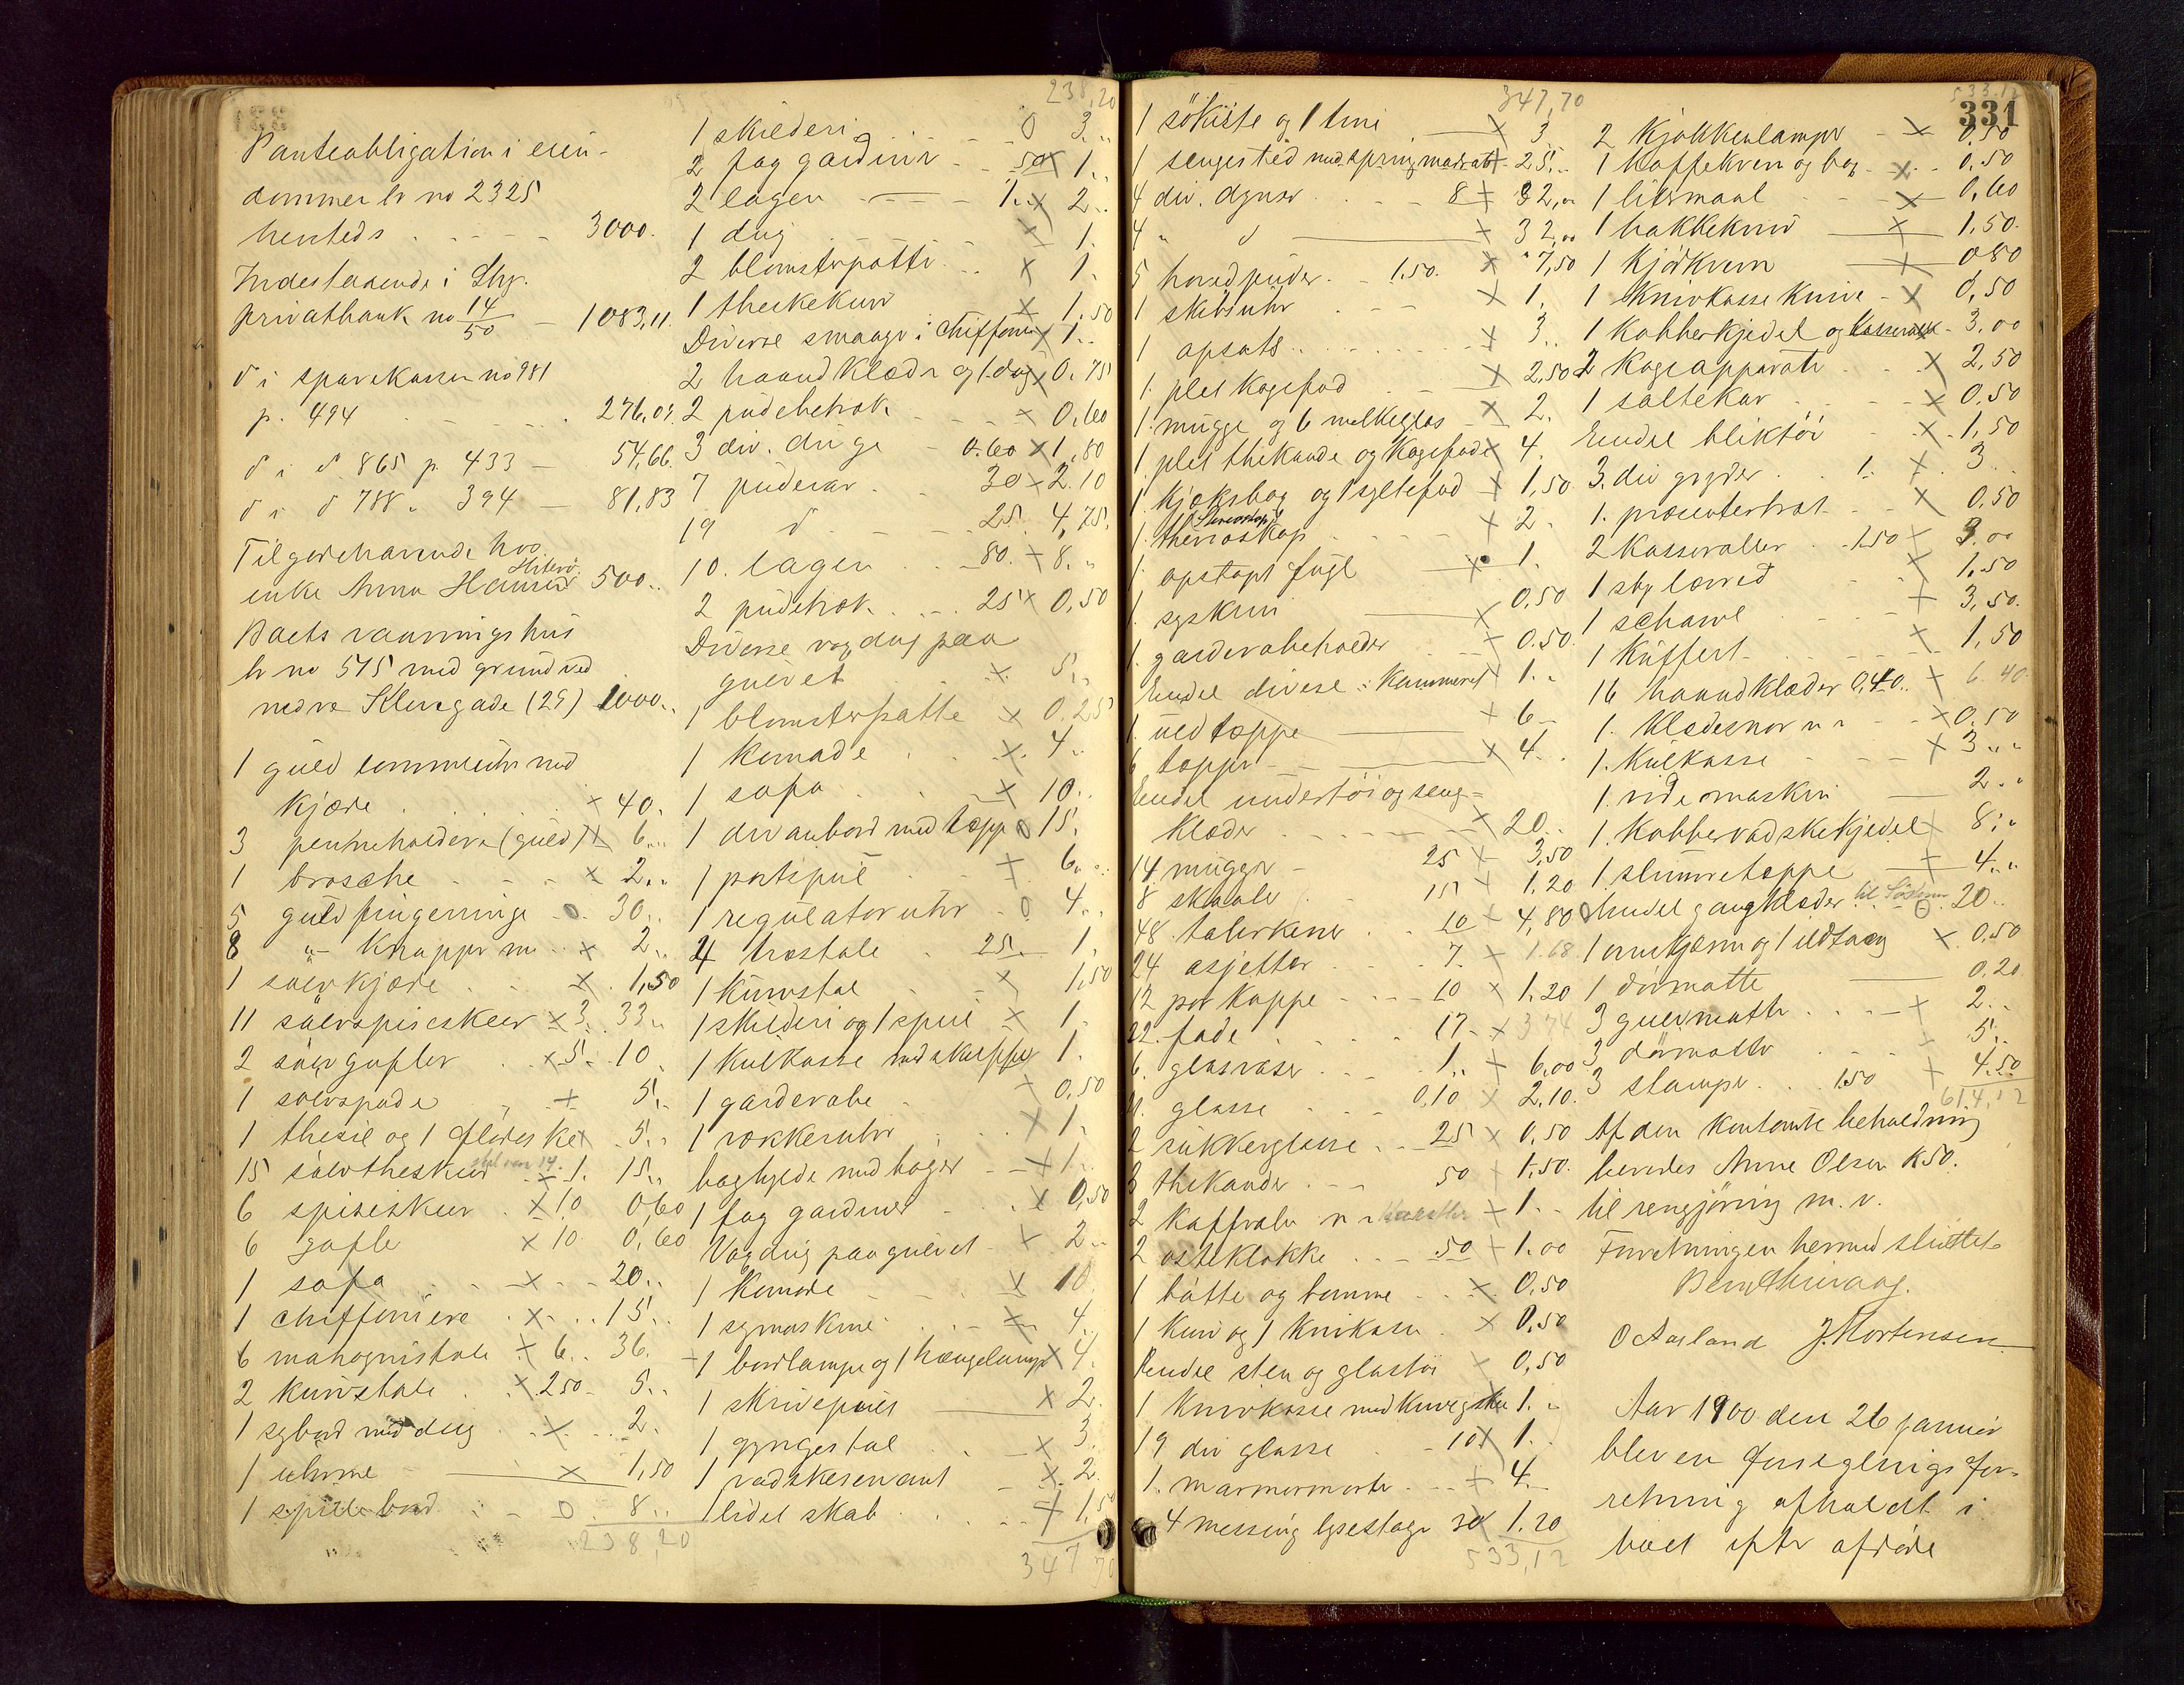 Panteobligation i eien-
dommen br no 2325
hersteds - - - - 3000.
Indestaaende i Stvg.
privatbank no 14/50 - 1083,11.
d i sparekassen no 981
p. 494 - - - 276,09.
d i d 865 p. 433 - 54,66.
d i d 788 " 394 - 81,83
Tilgodehavende hos
enke Anna Hansen 500..
Boets vaaningshus
br no 515 med grund ved
nedre Klevegade (29) 1000..
1 guld lommeuhr med
kjæde . . . x 40.
3 penneholdere (guld) x 6...
1 brosche - - - x 2..
5 guld fingerringe 0 30..
8 " knapper m. x 2..
1 sølvkjæde . . x 1,50
11 sølvspiseskeer x 3. 33..
2 sølvgafler . x 5. 10.
1 sølvspade . + 5..
1 thesie og 1 flødeske x 5..
15 sølvtheskeer x 1. 15..
6 spiseskeer . x 10 0,60
6 gafle x 10 0,60
1 sofa . . x . . 20..
1 chiffoniere . x . . 15..
6 mahognistole x 6.. 36.
2 kurvstole . x 250 - 5..
1 sybord med dug . x . . 2.
1 uhrne - x 1,50
1 spillebord - 0 8..
238,20
238,20
1 skilderi . . - 0 3..
2 fag gardiner - 50 x 1..
2 lagen - - - 1.. x 2..
1 dug x 1.
2 blomsterpotte . . x 1.
1 thekekurv x 1.50
Diverse smaagr i chiffonier x 1..
2 haandklæder og 1 dug x 0.75
2 pudebetræk - - x 0,60
3 div. duge - 0.60 x 1.80
7 pudevar . - 30 x 2.10
19 d - - 25. 4,75.
10. lagen . . 80. + 8..
2 pudetræk . . . 25 x 0,50
Diverse voxdug paa
gulvet . . x. 5..
1 blomsterpotte x 0.25
1 komode . . x. 4..
1 sofa . . x 10..
1 divanbord med tæppe 0 15.
1 portspul - + 6..
1 regulatoruhr - 0. 4..
4 træstole . 25. 1.
1 kurvstol - - x 1,50
1 skilderi og 1 speil x 1.
1 kulkasse med skuffe x 1.
1 garderobe - + 0,50
1 vækkeruhr . . x 1.
boghylde med bøger - x 1..
1 fag gardiner - . x 0,50
Voxdug paa gulvet - x 2..
1 komode - - x 10
1 symaskine . . - x 4.
1 bordlampe og 1 hængelampe x 4.
1 skrivepult x 2.
1 gyngestol . . - x 3.
1 vadskeservant - x 2.
1 lidet skab . . . + 1,50
347,70
347,70
1 søkiste og 1 tine x 3
1 sengested med springmadrats + 25..
4 div. dyner . . - 8 + 32,,
4 " d + 32,,
5 hovedpuder . 1.50. x 7,50
1 skibsuhr . . - x 1.
1 opsats . . . . x 3..
1. plet kagefad . . x 2,50
1. mugge og 6 melkeglas x 2.
1. plet thekande og kagefade x 4.
1. kjøksbog og 1 syltefad x 1,50
1. theroskop Stereoskop x 2.
1. opstopt fugl x 1.
1. syskrin x 0,50
1. garderobeholder + 0.50.
Endel diverse i kammeret x 1..
1. uldtæppe + 6..
6 tæpper - x 4..
Endel undertøi og seng-
klæder - - - x 20..
14 mugger - 25 x 3,50
8 skaale . 15 + 1.20
48. talerkener . . 10 x 4,80
24 asjetter . . 7. x 1.68
12 par koppe - - - 10 x 1.20
22. fade . . . 17. x 3 74
6. glasvaser . . - 1.. + 6,00
21. glasse - - - 0,10 x 2,10.
2 sukkerglasse . . 25 x 0,50
3 thekander . - - 50 + 1,50.
2 kaffedaler m m + 1..
2 osteklokke . . . 50 + 1.00
1 bøtte og bomme . . x 0,50
1 kurv og 1 knivkasse . x 0,50
Endel sten og glastøi x 0,50
1 knivkasse med knive g skeer 1..
19 div glasse . - 10 x 1..
1. marmormorter . . + 4..
4 messing lysestage 30 x 1.20
533,12
533.12
331
2 kjøkkenlamper - x 0,50
1 kaffekvern og bog . x - 0.50
1 litermaal - - x 0,60
1 hakkekniv x 1,50.
1 kjødkvern + 080
1 knivkasse knive - x 0,50
1 kobberkjedel og kasserolle - 3.00
2 kogeapparater . . x 2,50
1 saltekar - - - x 0.50
Endel bliktøi . x. 1,50
3. div gryder . . 1. x. 3..
1. præsenterbræt . x 0.50
2 kasseroller . 1.50 x 3.00
1 stk lærred - x 1.50
1 schawl . - + 3,50.
1 kuffert - - - x 1,50
16 haandklæder 0,40.. + 6.40
1. klædesnor m m - - x 0,50
1. kulkasse - - - x 3..
1. ridemaskin 2..
1. kobbervadskekjedel x 8..
1. slumretæppe + 4..
Endel gangklæder 20..
1 ovnskjærm og 1 ildtang x 0,50
1 dørmatte 0,20
3 gulvmatte . . . - + 2..
3 dørmatte . . . - + 5..
3 stamper . . 1.50 + 4.50
614,12
Af den kontante beholdning
leveredes Anne Olsen K 50.
til rengjøring m. v.
Forretningen hermed sluttet.
Berg Thuraag.
O Aasland J. Mortensen
Aar 1900 den 26 januar
blev en forseglings for-
retning afholdt i
boet efter afdøde